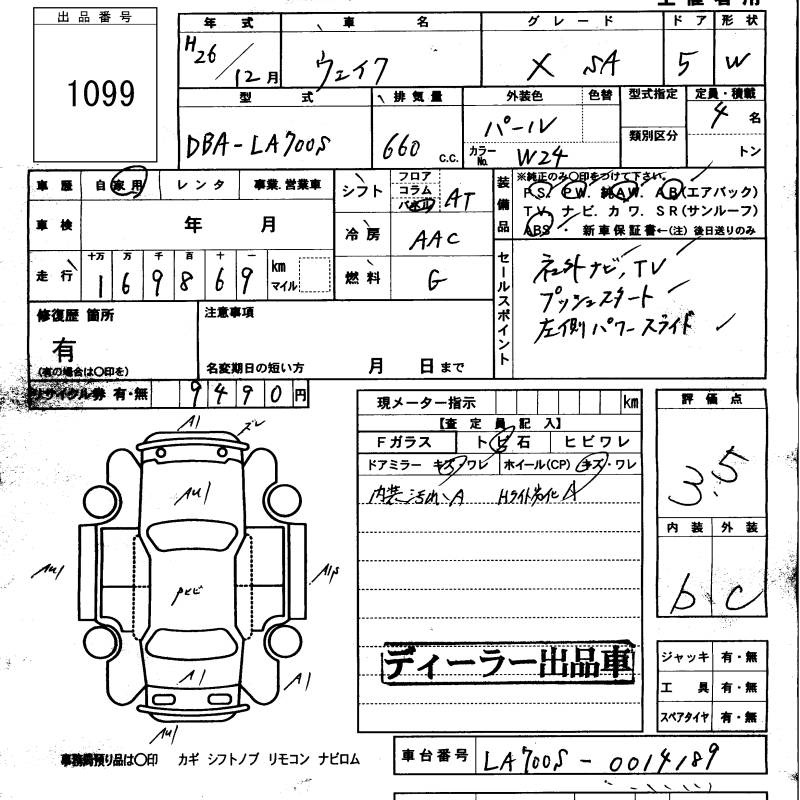 出品番号
1099
年式 車名 グレード ドア 形状
H26/12月 ウェイク X SA 5 W
型式 排気量 外装色 色替 型式指定 定員・積載
DBA-LA700S 660 c.c. パール 類別区分 4名
カラーNo. W24 トン
車歴 自家用 レンタ 事業.営業車
車検 年 月
走行 十万 万 千 百 十 一
169869 km マイル
シフト フロア コラム パネル AT
冷房 AAC
燃料 G
装備品 ※純正のみ〇印をつけて下さい。
PS. PW. 純AW. AB(エアバック)
TV. ナビ. カワ. SR(サンルーフ)
ABS・ 新車保証書←(注)後日送りのみ
セールスポイント
社外ナビ, TV
プッシュスタート
左側パワースライド
修復歴 箇所
有
(有の場合は〇印を)
注意事項
名変期日の短い方 月 日まで
リサイクル券 有・無 9490円
現メーター指示 km
【査定員記入】
Fガラス トビ石 ヒビワレ
ドアミラー キズ・ワレ ホイール(CP) キズ・ワレ
内装汚れA Hライト劣化A
評価点
3.5
内装 外装
b C
A1
AU1
AU1
A1
A1
AU1
ディーラー出品車
ジャッキ 有・無
工具 有・無
スペアタイヤ 有・無
事務局預り品は〇印 カギ シフトノブ リモコン ナビロム
車台番号 LA700S-0014189